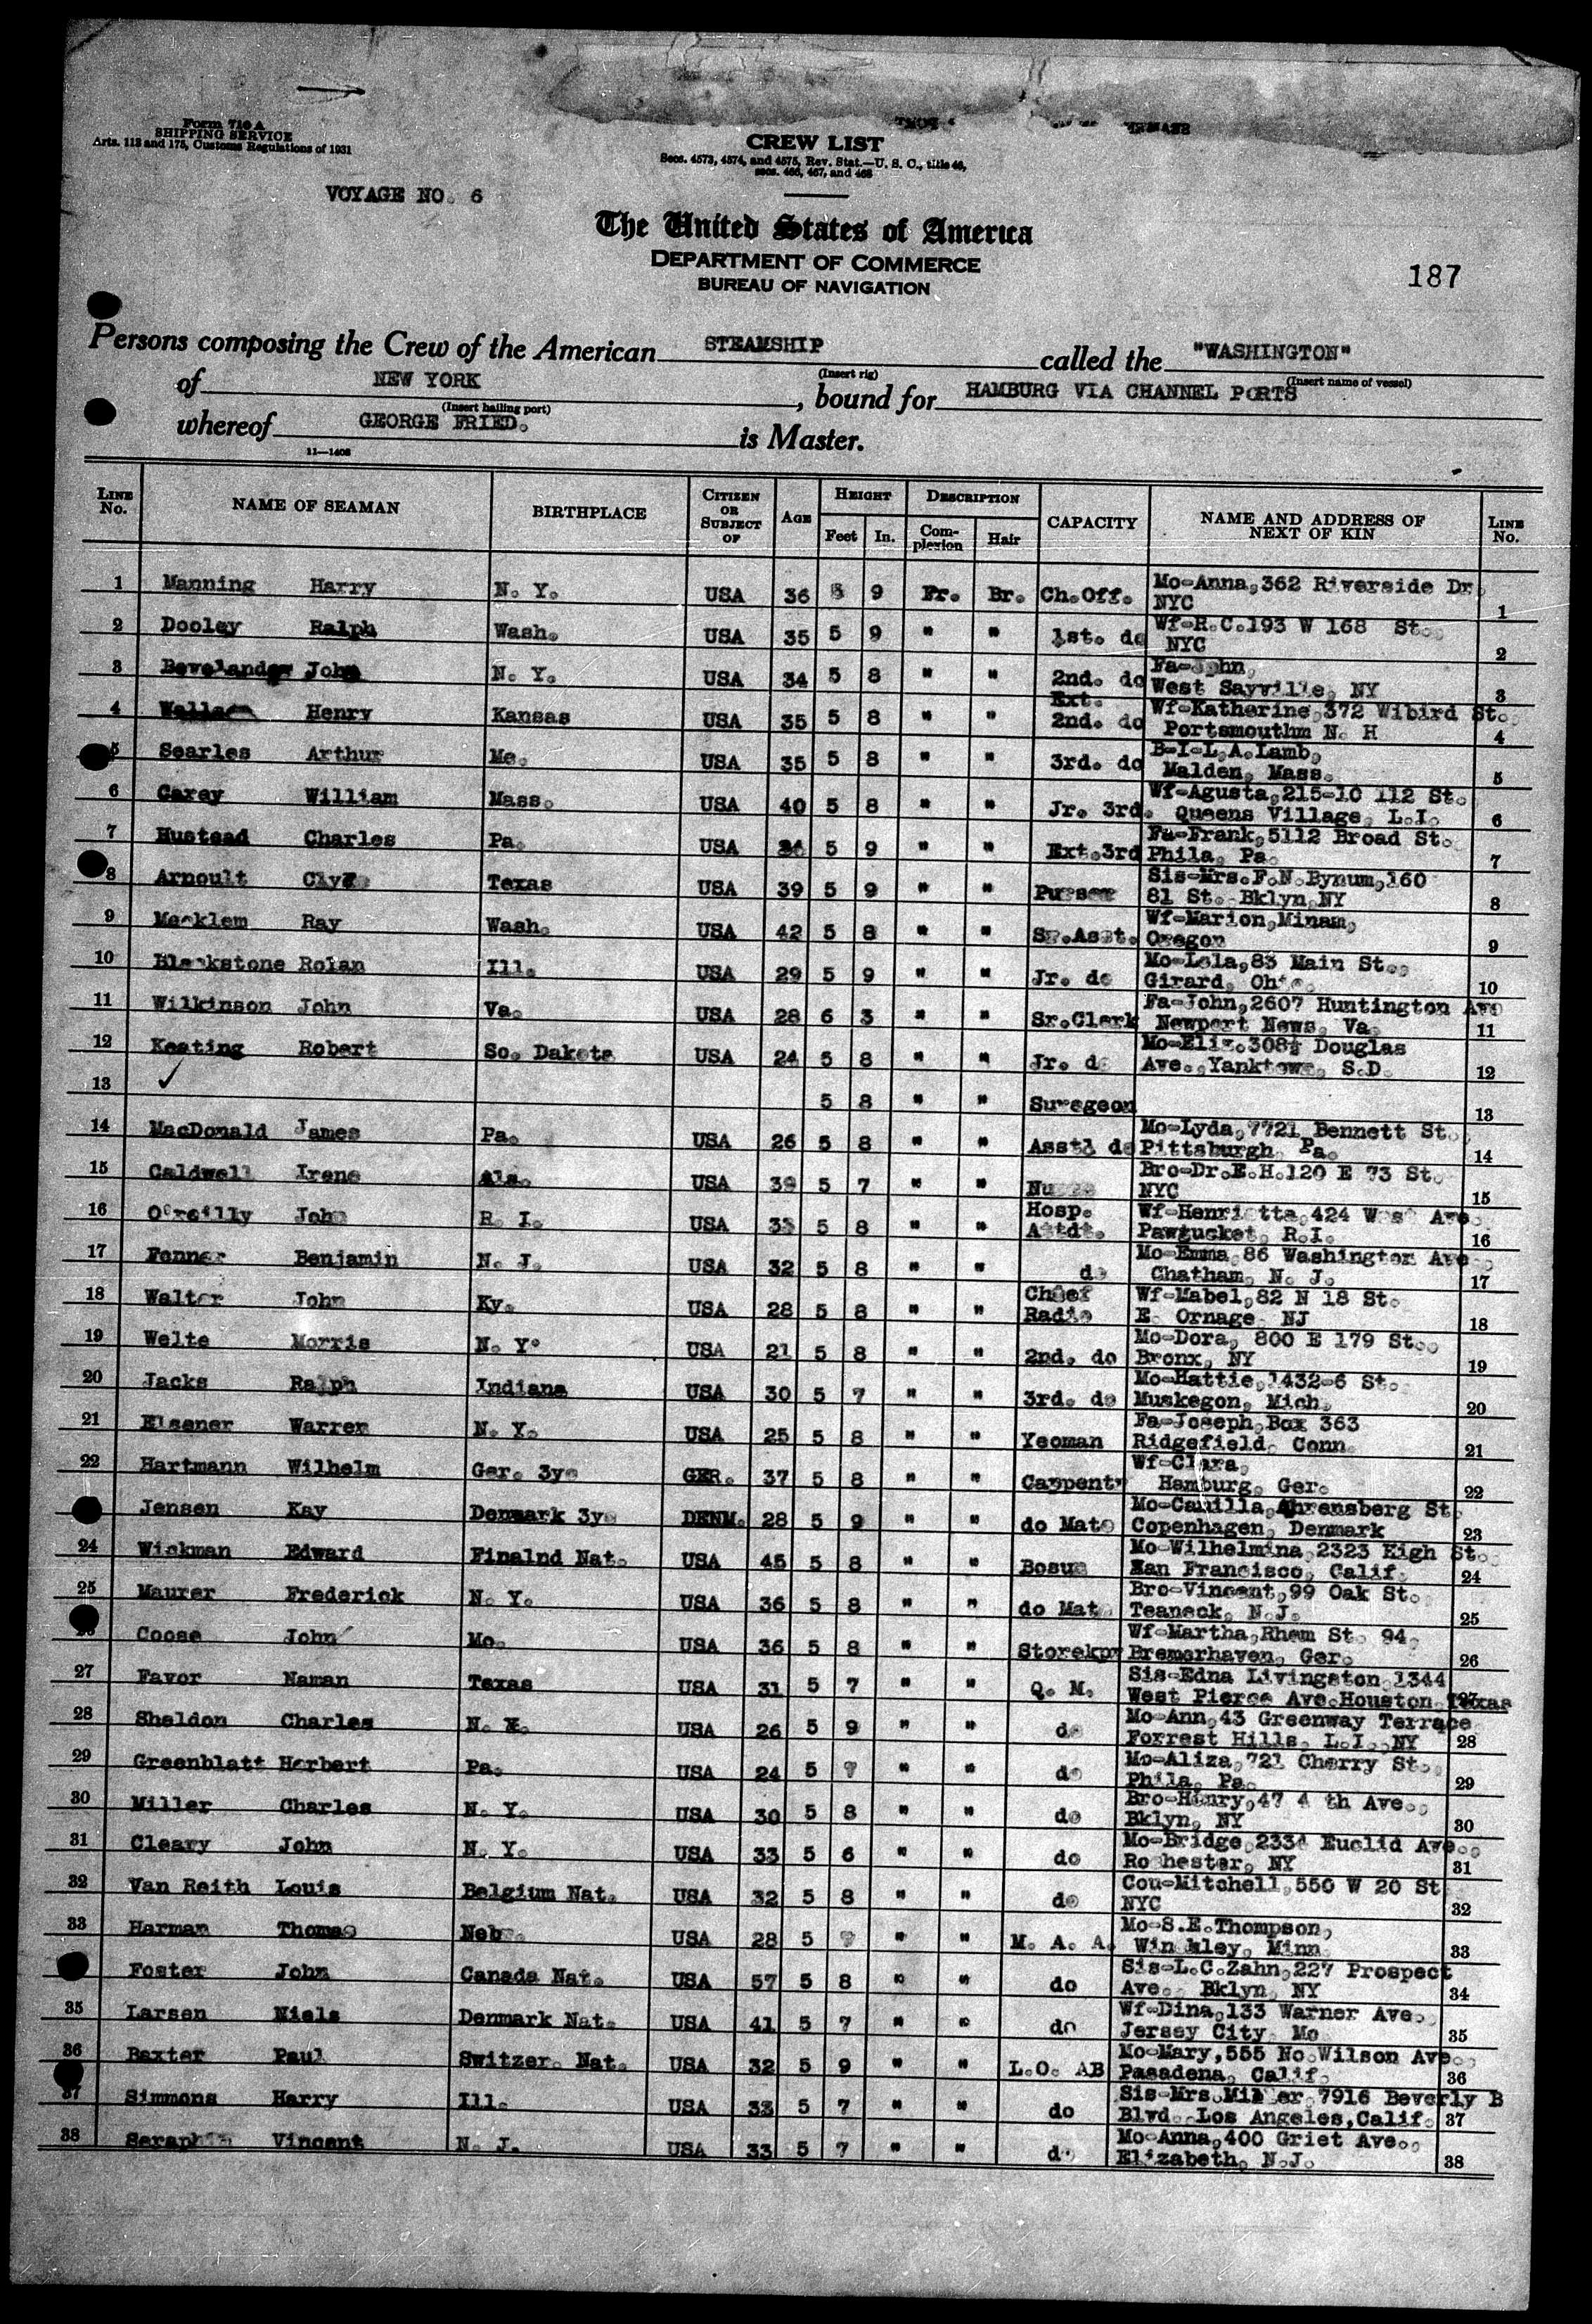 Form 710 A
SHIPPING SERVICE
Arts. 113 and 175, Customs Regulations of 1931
VOYAGE NO. 6
CREW LIST
Secs. 4573, 4574, and 4575, Rev. Stat.—U. S. C., title 46,
secs. 466, 467, and 468
The United States of America
DEPARTMENT OF COMMERCE
BUREAU OF NAVIGATION
187
Persons composing the Crew of the American STEAMSHIP called the "WASHINGTON"
(Insert rig) (Insert name of vessel)
of NEW YORK, bound for HAMBURG VIA CHANNEL PORTS
(Insert hailing port)
whereof GEORGE FRIED. is Master.
11—1408
LINE No. NAME OF SEAMAN BIRTHPLACE CITIZEN OR SUBJECT OF AGE HEIGHT Feet In. DESCRIPTION Complexion Hair CAPACITY NAME AND ADDRESS OF NEXT OF KIN LINE No.
1 Manning Harry N. Y. USA 36 9 Fr. Br. Ch.Off. Mo-Anna,362 Riverside Dr. NYC 1
2 Dooley Ralph Wash. USA 35 5 9 " " 1st. do Wf-R.C.193 W 168 St. NYC 2
3 John N. Y. USA 34 5 8 " " 2nd. do Fa-John, West Sayville, NY 3
4 Wallace Henry Kansas USA 35 5 8 " " Ext. 2nd. do Wf-Katherine,372 Wibird St. Portsmouthm N. H 4
5 Searles Arthur Me. USA 35 5 8 " " 3rd. do B-I-L,A.Lamb, Malden, Mass. 5
6 Carey William Mass. USA 40 5 8 " " Jr. 3rd. Wf-Agusta,215-10 112 St. Queens Village, L.I. 6
7 Hustead Charles Pa. USA 5 9 " " Ext.3rd Fa-Frank,5112 Broad St. Phila, Pa. 7
8 Arnoult USA Texas 39 5 9 " " Purser Sis-Mrs.F.N.Bynum,160 81 St. Bklyn,NY 8
9 Mecklem Ray Wash. USA 42 5 8 " " Sr.Asst. Wf-Marion,Minam, Oregon 9
10 Blackstone Rolan Ill. USA 29 5 9 " " Jr. do Mo-Lola,83 Main St., Girard, Ohio. 10
11 Wilkinson John Va. USA 28 6 3 " " Sr.Clerk Fa-John,2607 Huntington Ave Newport News, Va. 11
12 Keating Robert So. Dakota USA 24 5 8 " " Jr. do Mo-Eliz.308½ Douglas Ave.,Yanktown, S.D. 12
13 ✓ 5 8 " " Suregeon 13
14 MacDonald James Pa. USA 26 5 8 " " Asst. do Mo-Lyda,7721 Bennett St. Pittsburgh, Pa. 14
15 Caldwell Irene Ala. USA 39 5 7 " " Nurse Bro-Dr.E.H.120 E 73 St. NYC 15
16 O'reilly John R. I. USA 33 5 8 " " Hosp. Attdt. Wf-Henrietta,424 West Ave. Pawtucket, R.I. 16
17 Fenner Benjamin N. J. USA 32 5 8 " " do Mo-Emma,86 Washington Ave. Chatham, N. J. 17
18 Walter John Ky. USA 28 5 8 " " Chief Radio Wf-Mabel,82 N 18 St. E. Ornage NJ 18
19 Welte Morris N. Y. USA 21 5 8 " " 2nd. do Mo-Dora, 800 E 179 St., Bronx, NY 19
20 Jacks Ralph Indiana USA 30 5 7 " " 3rd. do Mo-Hattie,1432-6 St. Muskegon, Mich. 20
21 Elsener Warren N. Y. USA 25 5 8 " " Yeoman Fa-Joseph,Box 363 Ridgefield, Conn. 21
22 Hartmann Wilhelm Ger. 3ye GER. 37 5 8 " " Carpentr Wf-Clara, Hamburg, Ger. 22
Jensen Kay Denmark 3ye DENM. 28 5 9 " " do Mate Mo-Camilla,Ahrensberg St. Copenhagen, Denmark 23
24 Wickman Edward Finalnd Nat. USA 45 5 8 " " Bosun Mo-Wilhelmina,2323 Eigh St. San Francisco, Calif. 24
25 Maurer Frederick N. Y. USA 36 5 8 " " do Mate Bro-Vincent,99 Oak St. Teaneck, N.J. 25
Coose John Mo. USA 36 5 8 " " Storekpr Wf-Martha,Rhem St. 94, Bremerhaven, Ger. 26
27 Favor Naman Texas USA 31 5 7 " " Q. M. Sis-Edna Livingston,1344 West Pierce Ave.Houston,Texas 27
28 Sheldon Charles N. Y. USA 26 5 9 " " do Mo-Ann,43 Greenway Terrace Forrest Hills, L.I. NY 28
29 Greenblatt Herbert Pa. USA 24 5 " " do Mo-Aliza,721 Cherry St., Phila, Pa. 29
30 Miller Charles N. Y. USA 30 5 8 " " do Bro-Henry,47 4 th Ave., Bklyn, NY 30
31 Cleary John N. Y. USA 33 5 6 " " do Mo-Bridge,2334 Euclid Ave., Rochester, NY 31
32 Van Reith Louis Belgium Nat. USA 32 5 8 " " do Cou-Mitchell,550 W 20 St NYC 32
33 Harman Thomas Neb. USA 28 5 " " M. A. A. Mo-S.E.Thompson, Minn. 33
Foster John Canada Nat. USA 57 5 8 " " do Sis-L.C.Zahn,227 Prospect Ave. Bklyn, NY 34
35 Larsen Niels Denmark Nat. USA 41 5 7 " " do Wf-Dina,133 Warner Ave. Jersey City Mo 35
36 Baxter Paul Switzer. Nat. USA 32 5 9 " " L.O. AB Mo-Mary,555 No.Wilson Ave., Pasadena, Calif. 36
37 Simmons Harry Ill. USA 33 5 7 " " do Sis-Mrs.Miller,7916 Beverly B Blvd. Los Angeles,Calif. 37
38 Seraphin Vincent N. J. USA 33 5 7 " " do Mo-Anna,400 Griet Ave., Elizabeth, N.J. 38